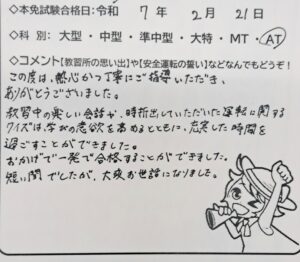 ◇本免試験合格日:令和 7年 2月 21日
◇科 別:大型・中型・準中型・大特・MT・AT
◇コメント【教習所の思い出】や【安全運転の誓い】などなんでもどうぞ!
この度は、熱心かつ丁寧にご指導いただき、
ありがとうございました。
教習中の楽しい会話や、時折出していただいた運転に関する
クイズは、学びの意欲を高めるとともに、充実した時間を
過ごすことができました。
おかげで一発で合格することができました。
短い間でしたが、大変お世話になりました。